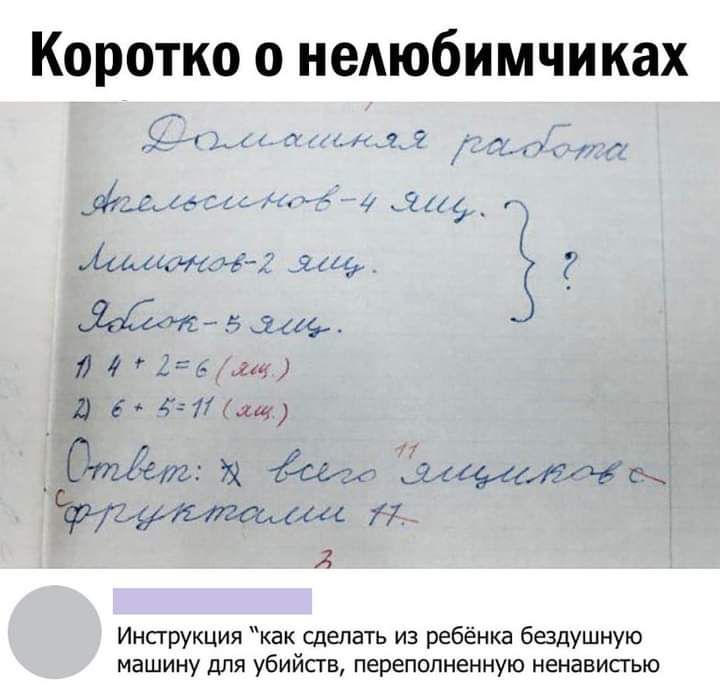 Коротко о нелюбимчиках
Домашняя работа
Апельсинов-4 ящ.
Лимонов-2 ящ.
Яблок-5 ящ.
}?
1) 4 + 2=6 (ящ.)
2) 6 + 5=11 (ящ.)
11
Ответ: всего ящиков с
с фруктами 11.
3
Инструкция "как сделать из ребёнка бездушную
машину для убийств, переполненную ненавистью